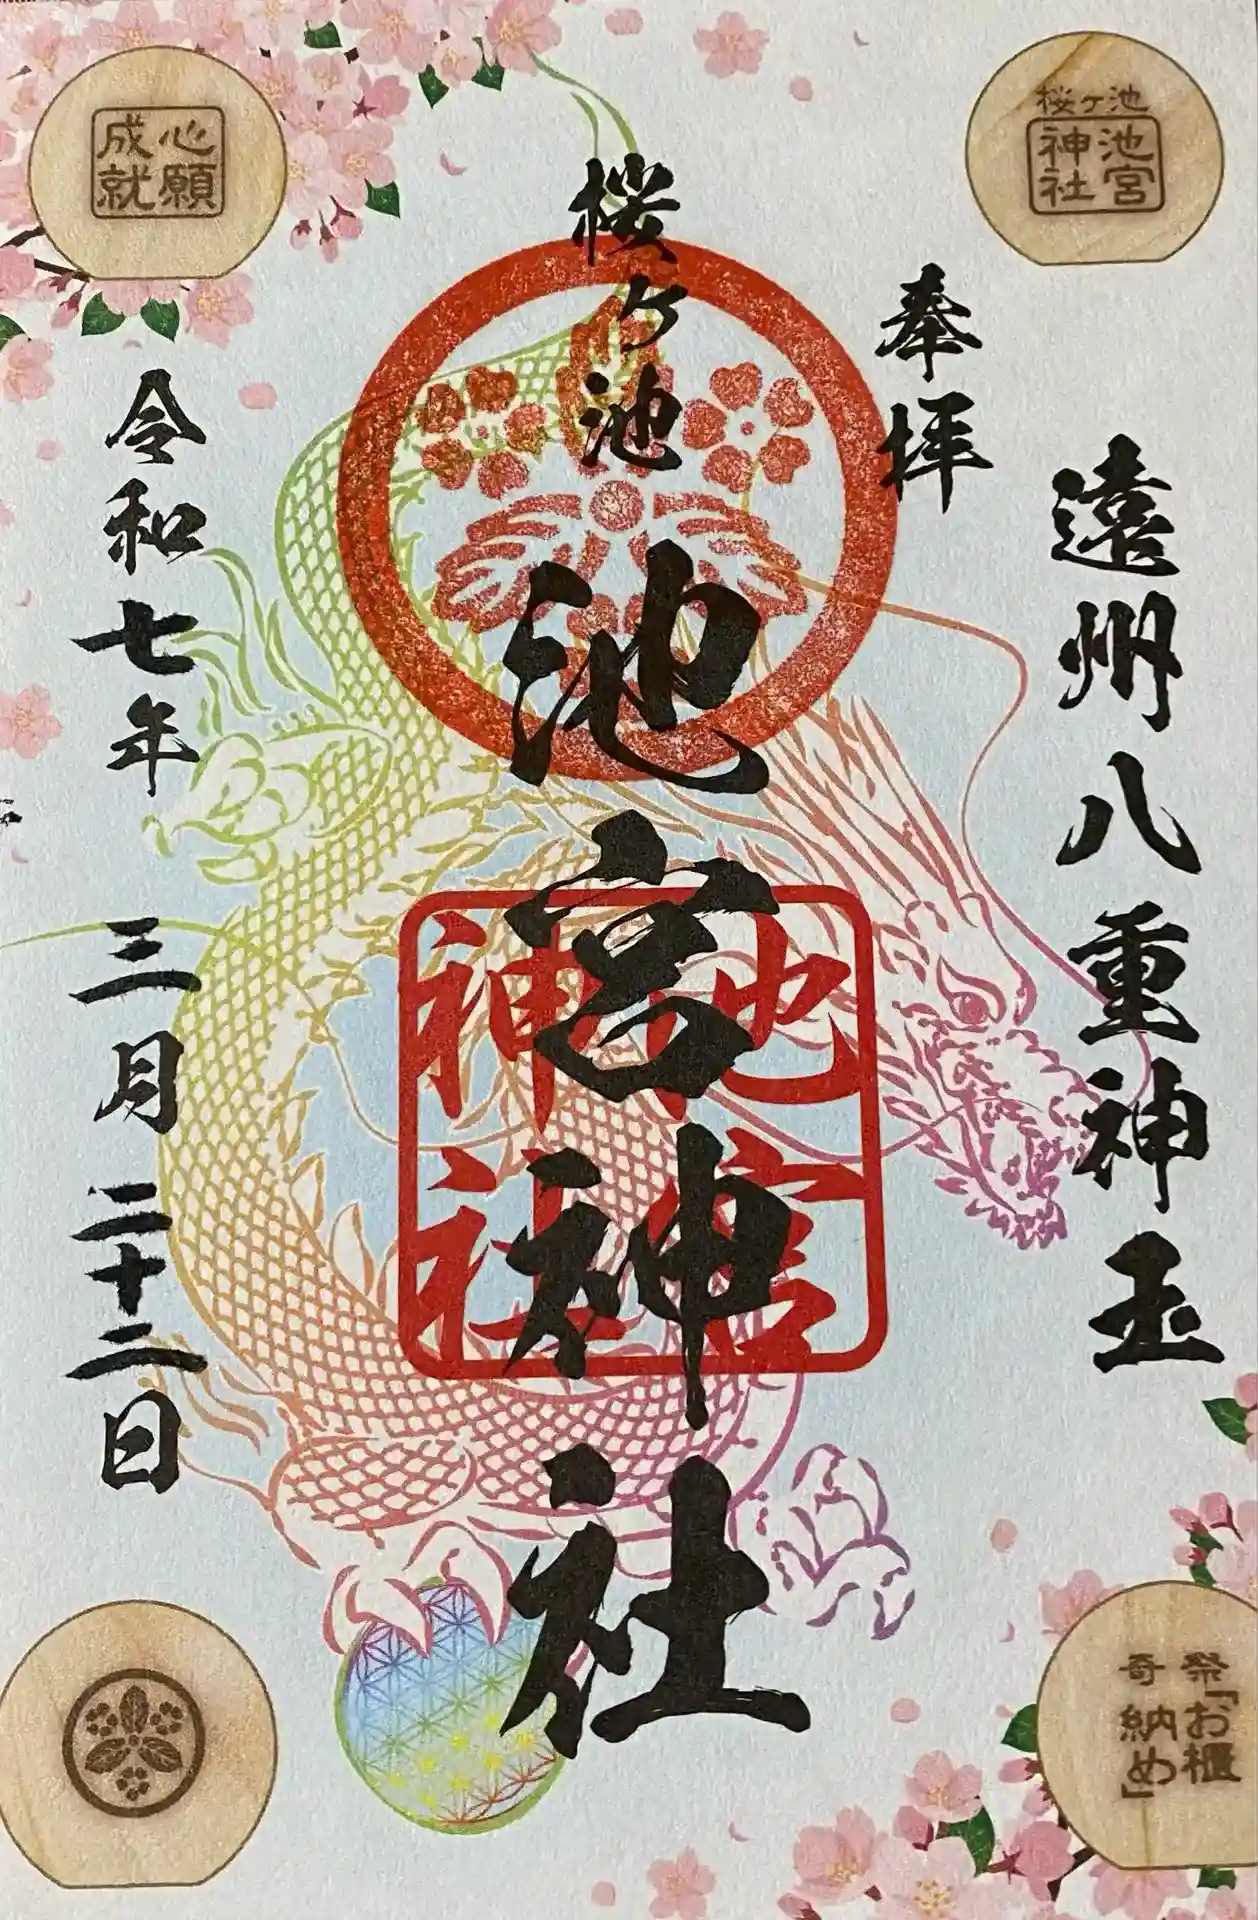 桜ヶ池
池宮
神社
遠州八重神玉
奉拝
桜ヶ池
池宮神社
池宮
神社
心願
成就
令和七年 三月 二十二日
奇祭「お櫃
納め」